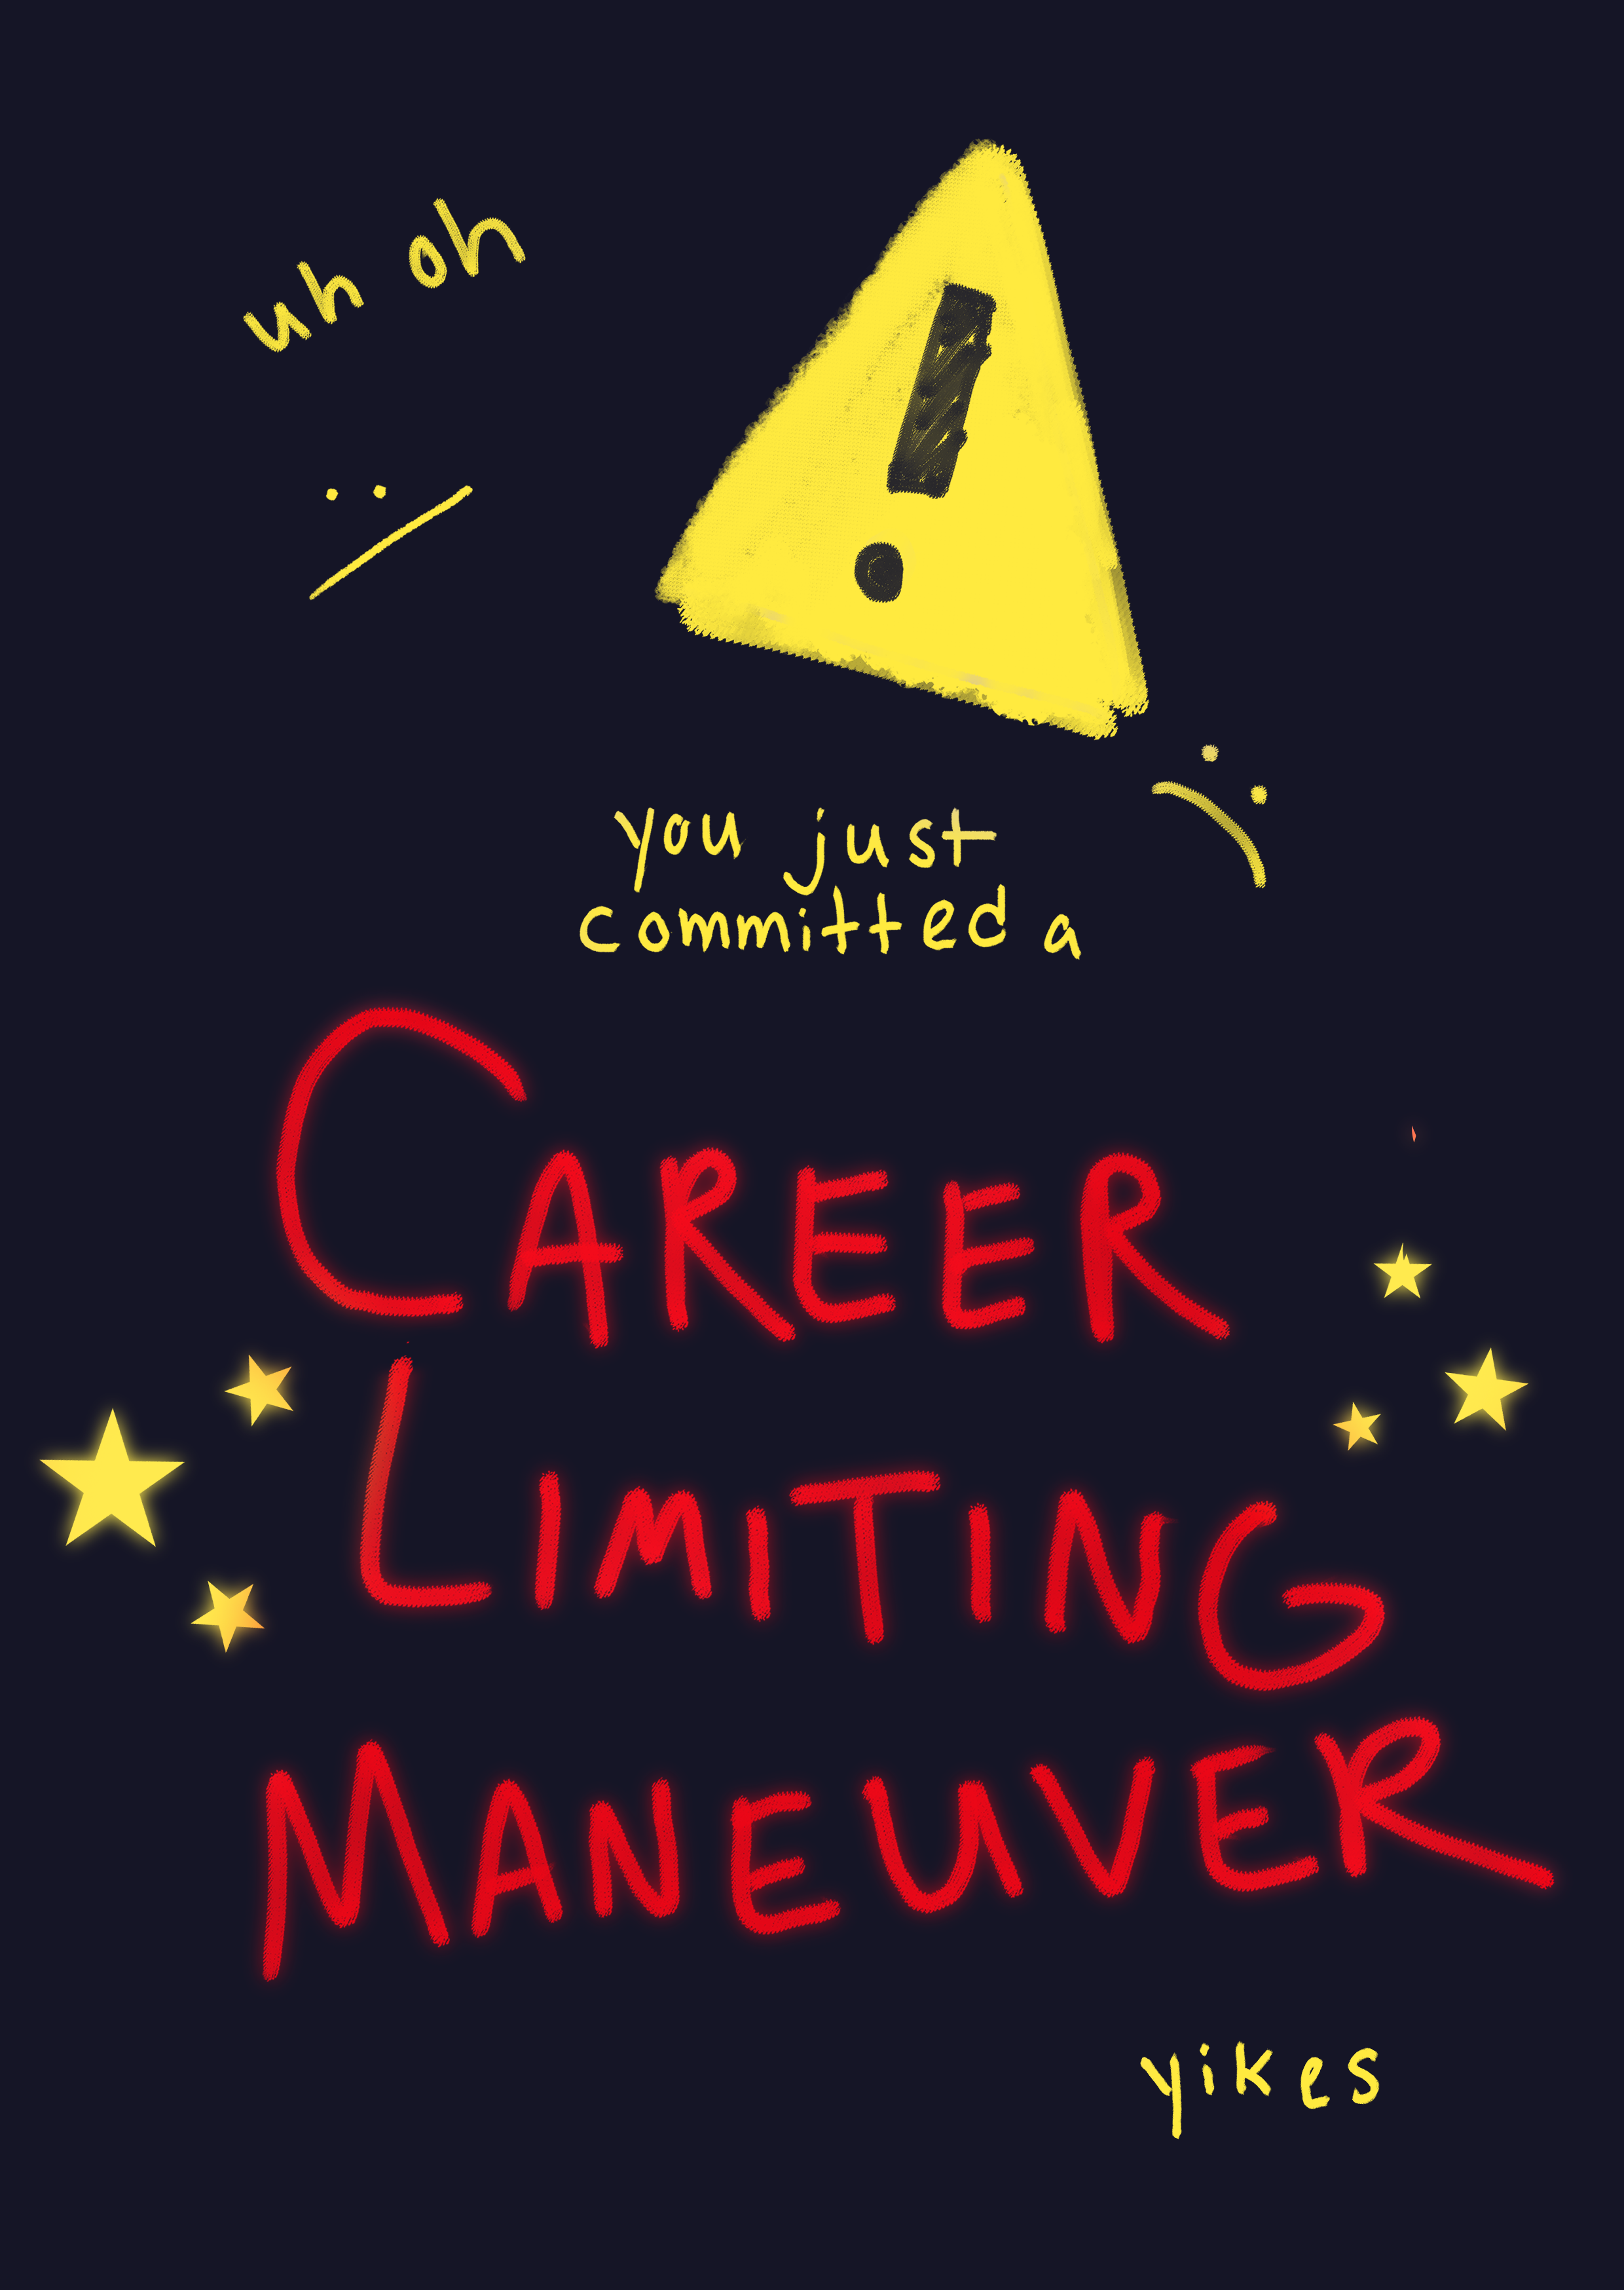 uh oh
!
you just
committed a
CAREER
LIMITING
MANEUVER
yikes